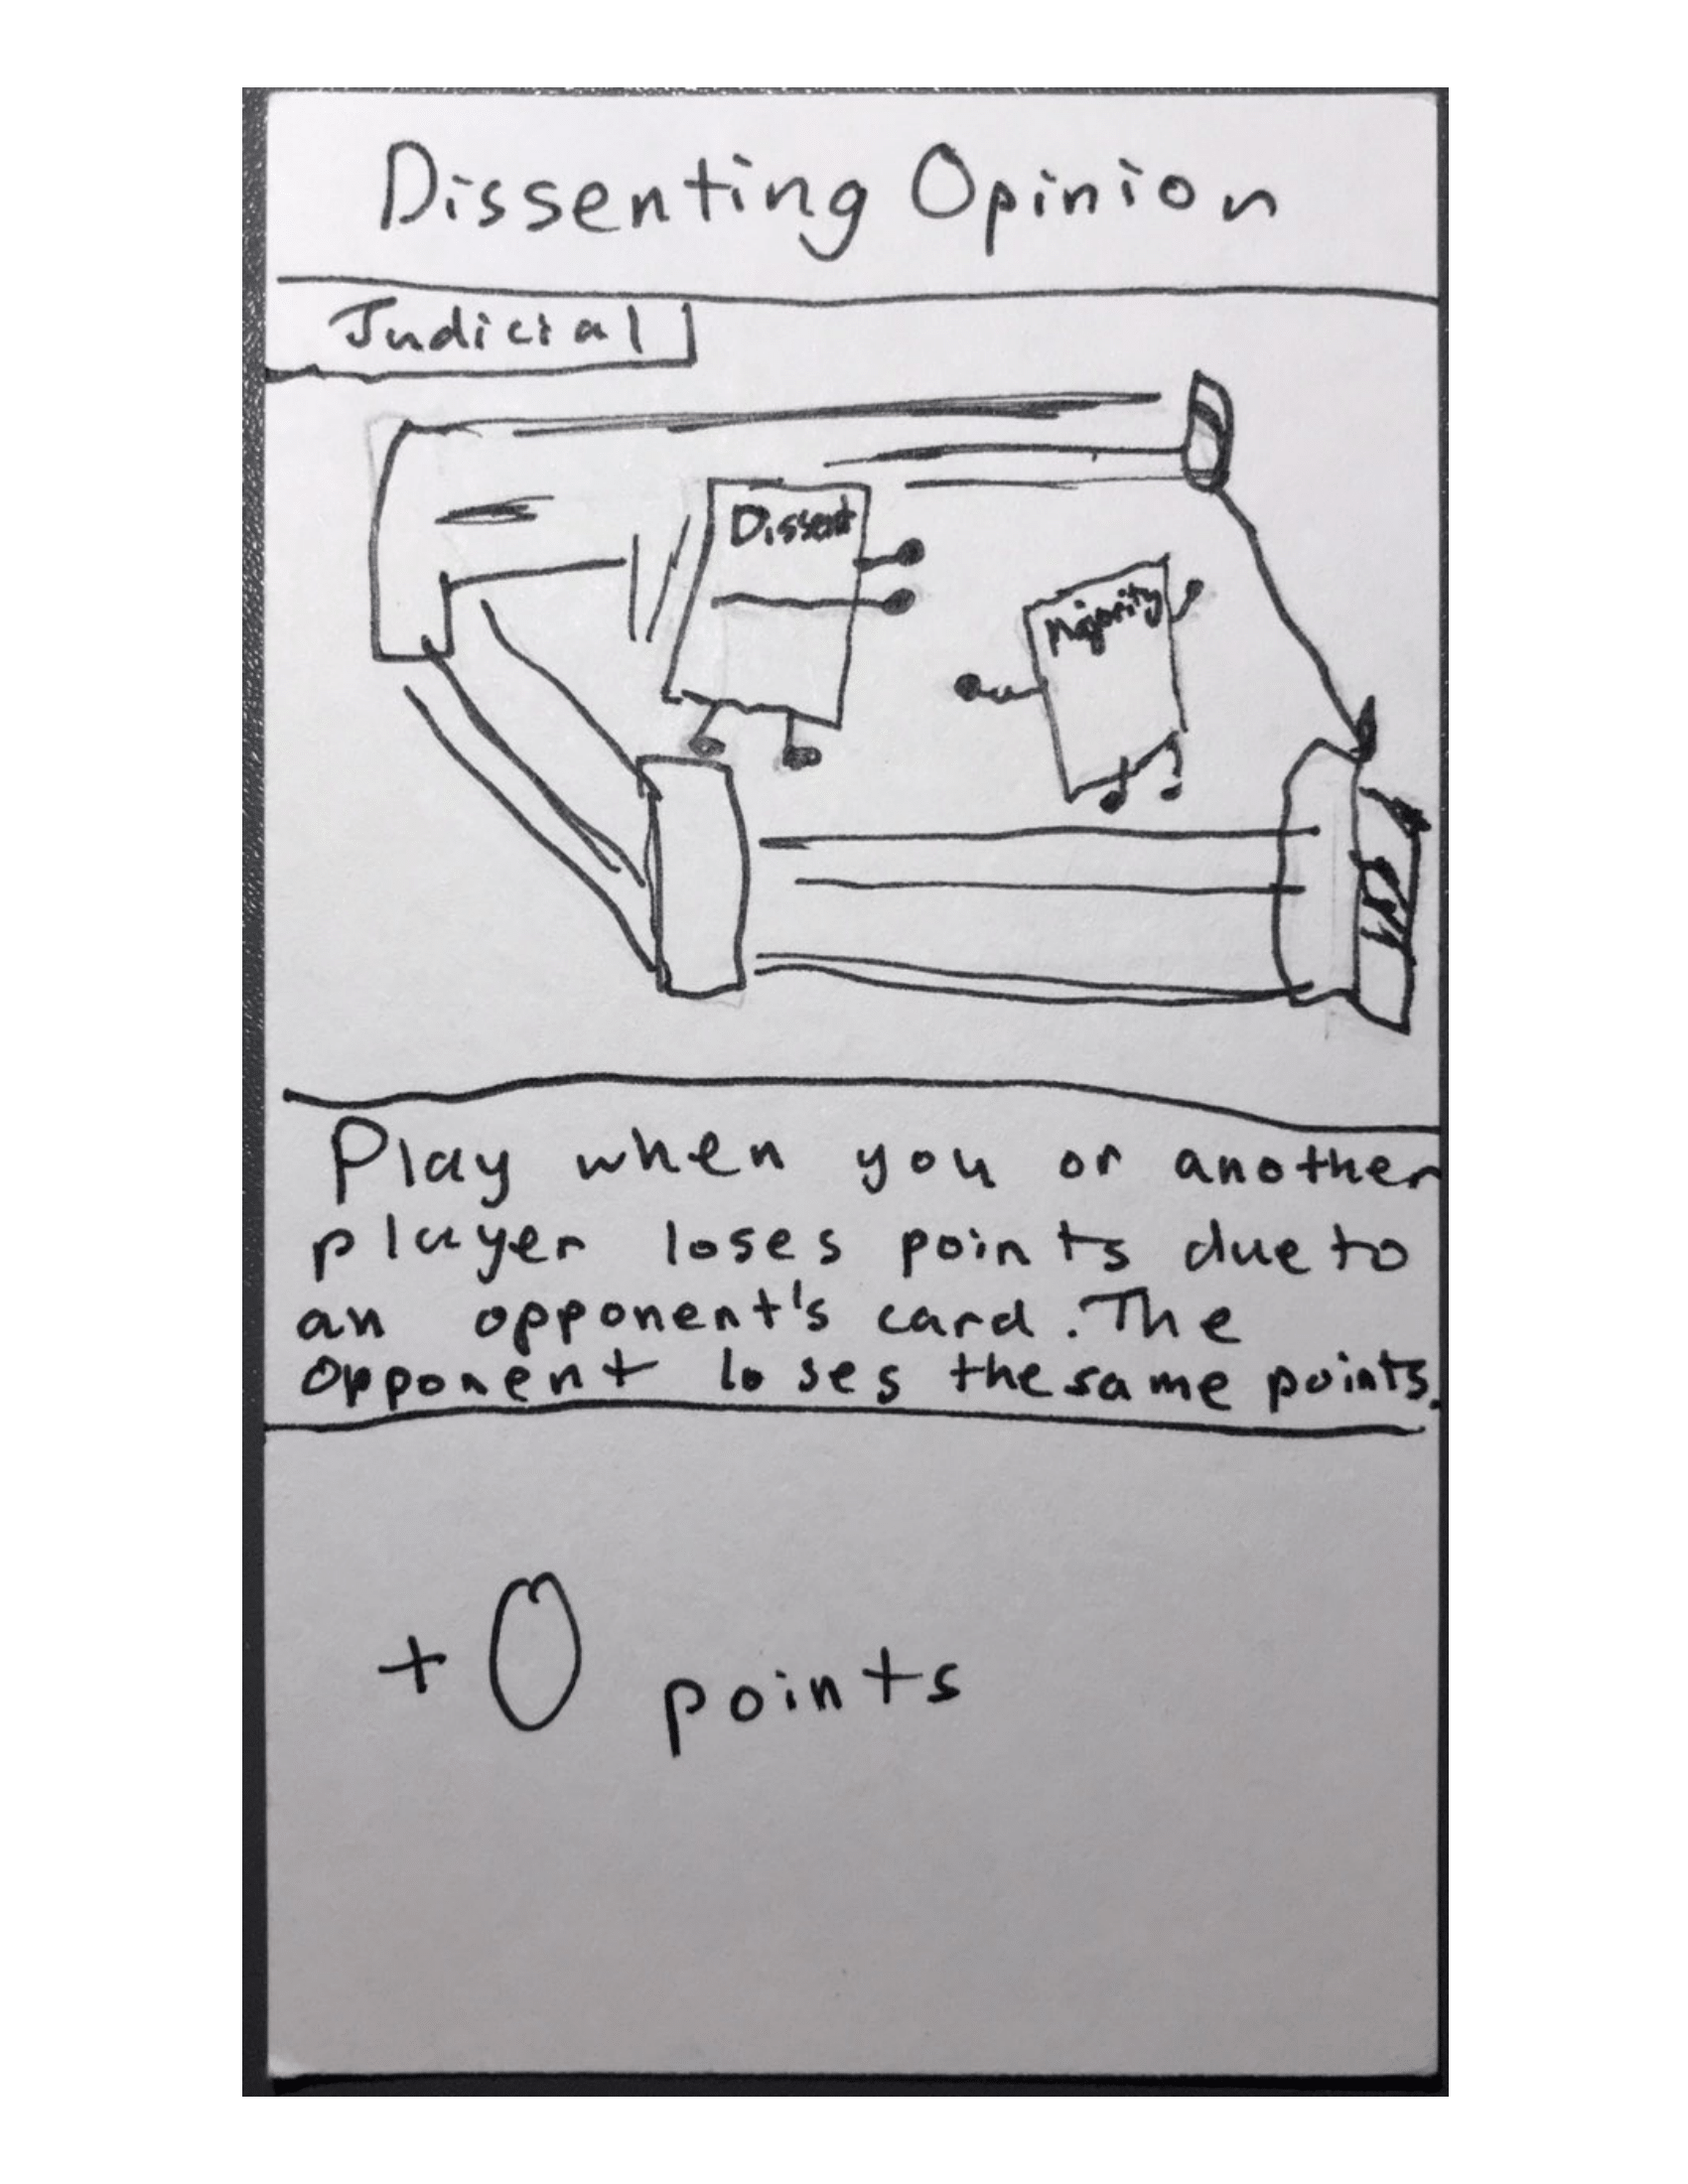 Dissenting Opinion
Judicial
Dissent
Majority
Play when you or another
player loses points due to
an opponent's card. The
opponent loses the same points.
+0 points